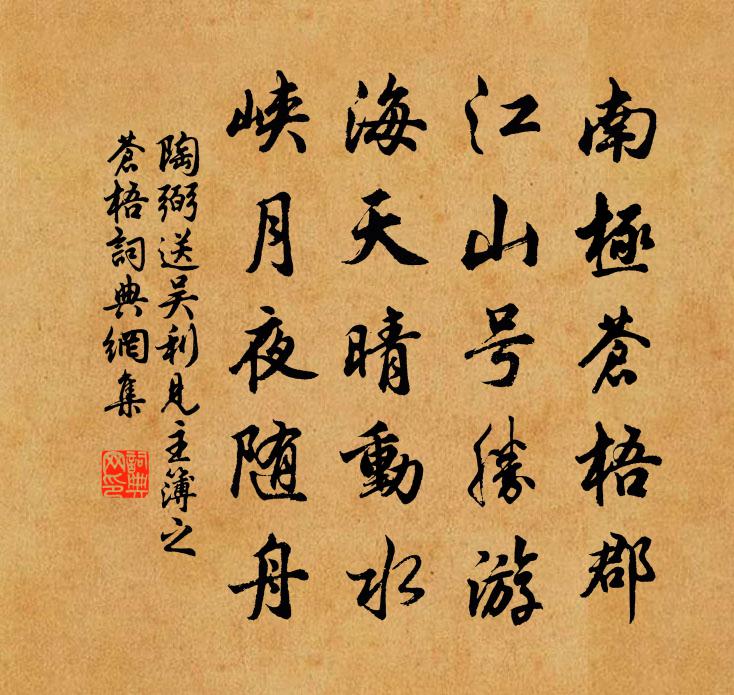 南極蒼梧郡
江山号勝游
海天晴動水
峡月夜随舟
陶弼送吴利見主簿之
蒼梧詞典網集
詞典網印